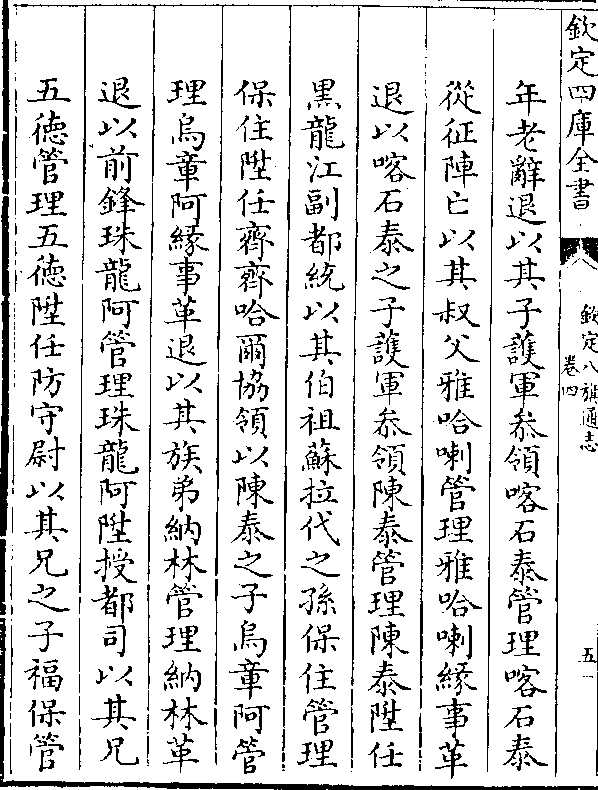 欽定四庫全書
欽定八旗通志
卷四
五
年老辭退以其子護軍叅領喀石泰管理喀石泰
從征陣亡以其叔父雅哈喇管理雅哈喇緣事革
退以喀石泰之子護軍叅領陳泰管理陳泰陞任
黑龍江副都統以其伯祖蘇拉代之孫保住管理
保住陞任齊齊哈爾協領以陳泰之子烏章阿管
理烏章阿緣事革退以其族弟納林管理納林革
退以前鋒珠龍阿管理珠龍阿陞授都司以其兄
五德管理五德陞任防守尉以其兄之子福保管